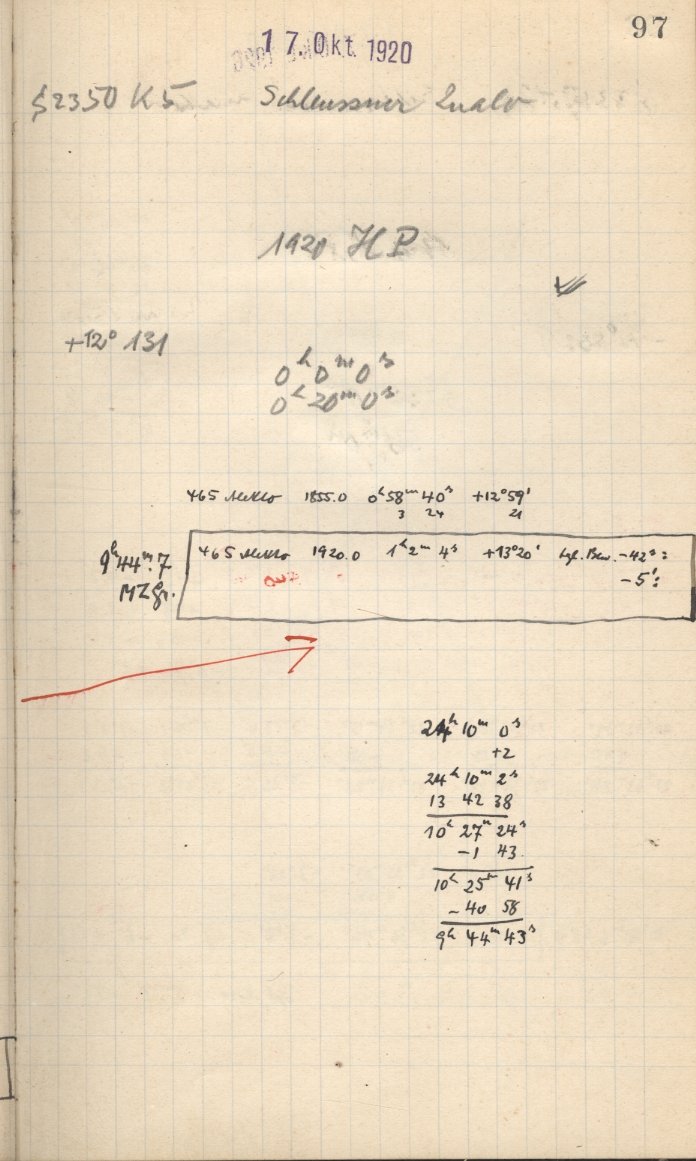 97
17. Okt. 1920
S 2350 K5 Schleussner
1920 HP
+12° 131
0ʰ 0ᵐ 0ˢ
0ʰ 20ᵐ 0ˢ
465 Alekto 1855.0 0ʰ 58ᵐ 40ˢ +12° 59'
3 24 21
9ʰ 44ᵐ.7 465 Alekto 1920.0 1ʰ 2ᵐ 4ˢ +13° 20' tgl. Bew. -42ˢ:
MZgr. -5':
24ʰ 10ᵐ 0ˢ
+2
24ʰ 10ᵐ 2ˢ
13 42 38
10ʰ 27ᵐ 24ˢ
-1 43
10ʰ 25ᵐ 41ˢ
-40 58
9ʰ 44ᵐ 43ˢ